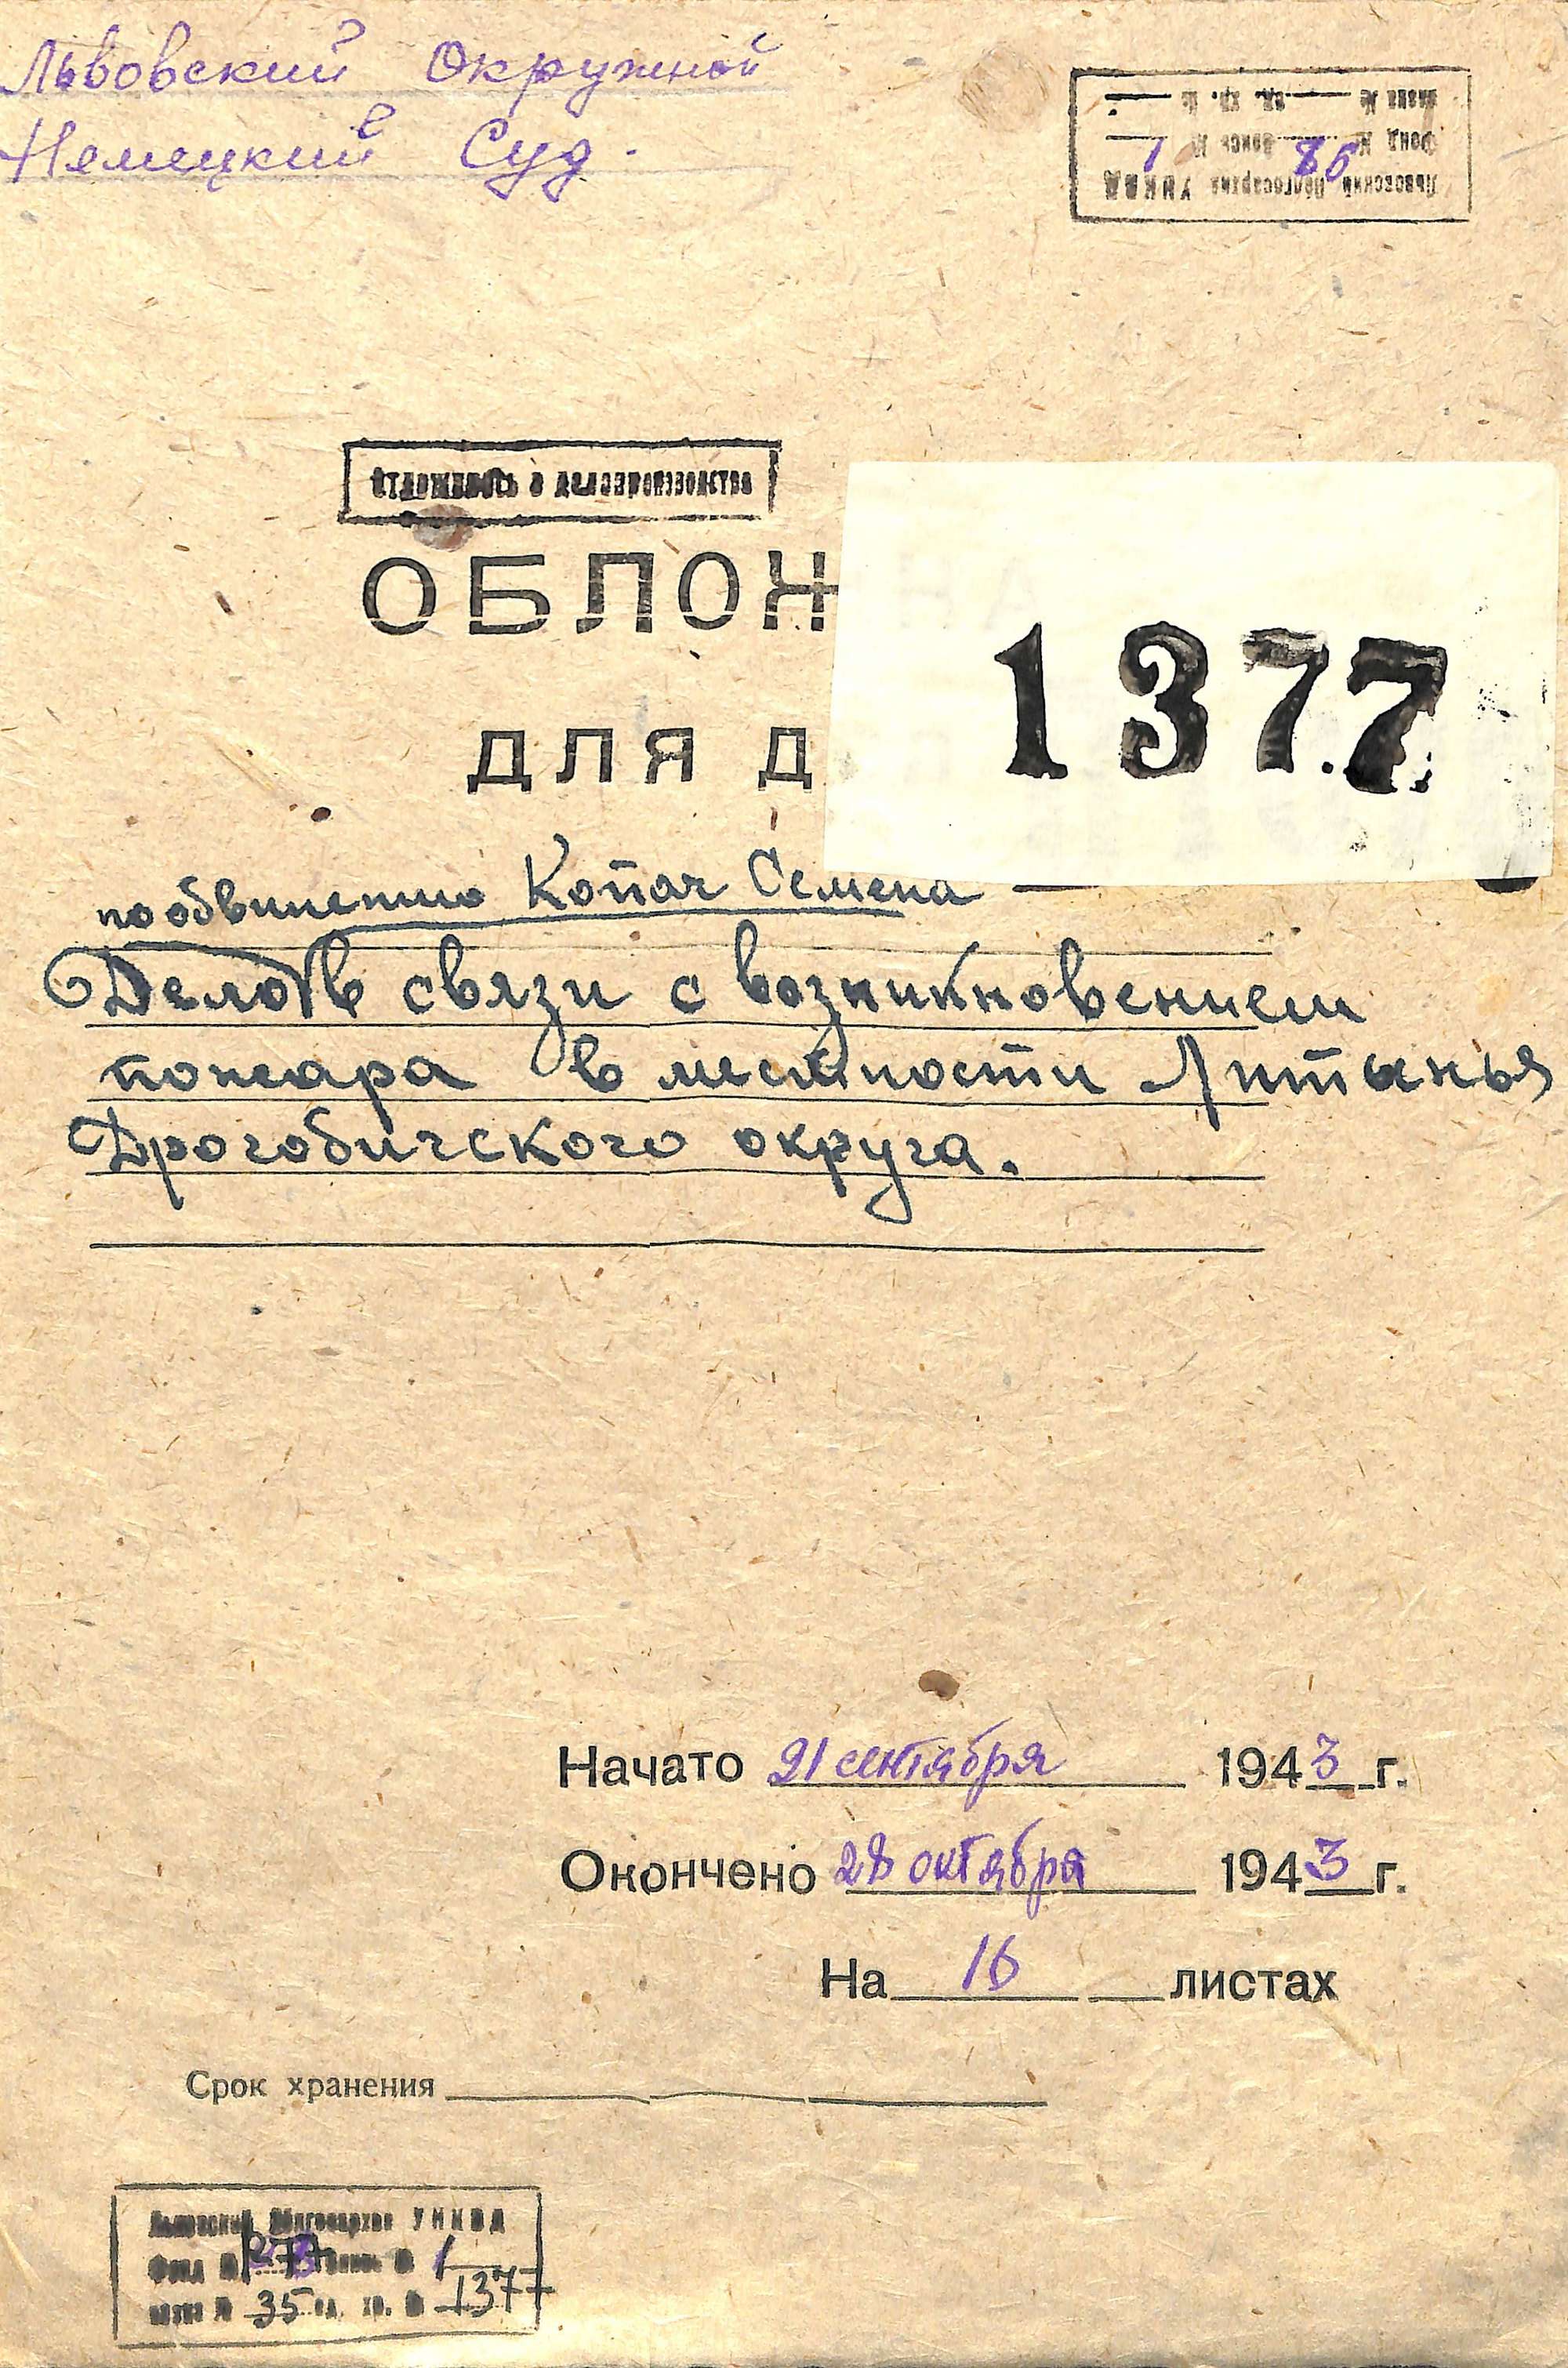 Львовский Окружной
Немецкий Суд.
Львовский Облгосархив УНКВД
Фонд № 86 опись № 1
связка № ед. хр. №
делопроизводства
ОБЛОЖ
ДЛЯ Д
1377
по обвинению Копач Семена —
Дело в связи с возникновением
пожара в местности Литынья
Дрогобичского округа.
Начато 21 сентября 1943 г.
Окончено 28 октября 1943 г.
На 16 листах
Срок хранения
Львовский Облгосархив УНКВД
Фонд № опись № 1
связка № 35 ед. хр. № 1377